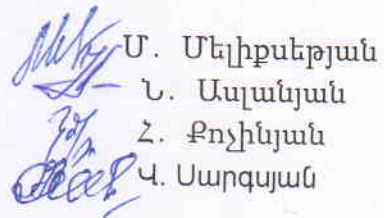 Մ. Մելիքսեթյան
Ն. Ասլանյան
Հ. Քոչինյան
Վ. Սարգսյան